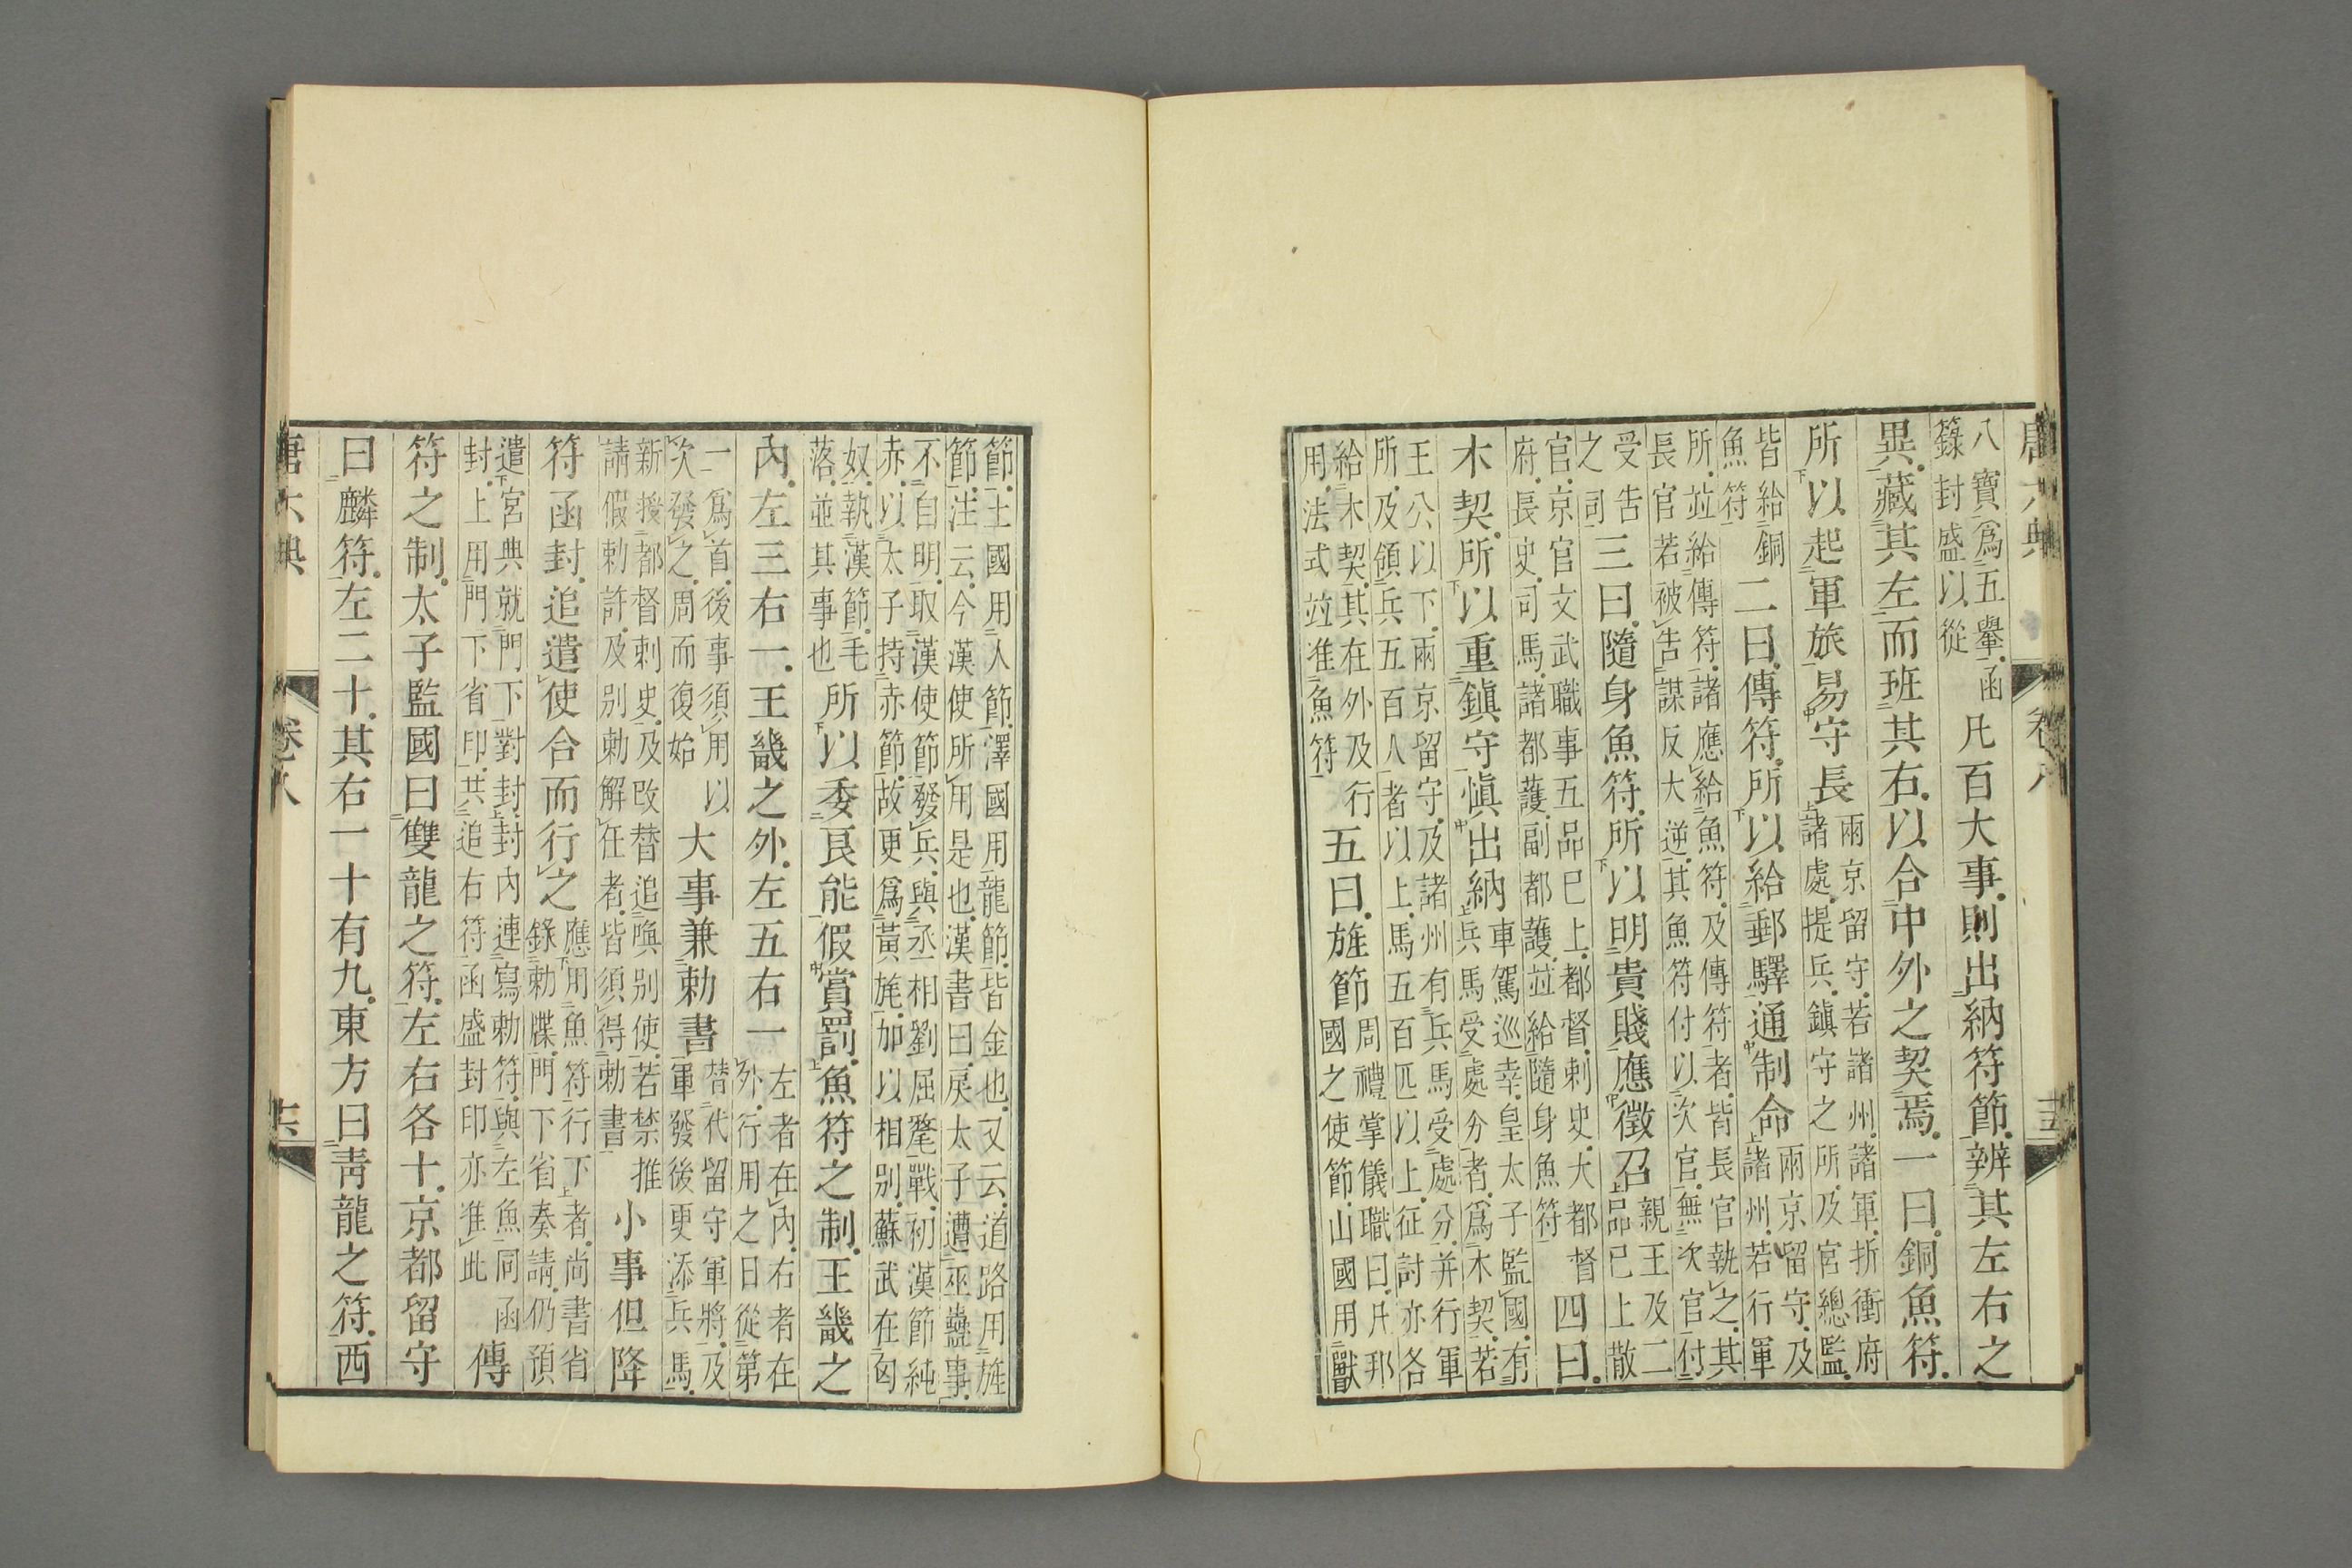 唐六典 卷八 十五
八寶爲五轝函
籙封盛以從
凡百大事則出納符節辨其左右之
異藏其左而班其右以合中外之契焉一曰銅魚符
所以起軍旅易守長
兩京留守若諸州諸軍折衝府
諸處提兵鎮守之所及宮總監
皆給銅
魚符
二曰傳符所以給郵驛通制命
兩京留守及
諸州若行軍
所並給傳符諸應給魚符及傳符者皆長官執之其
長官若被告謀反大逆其魚符付以次官無次官付
受告
之司
三曰隨身魚符所以明貴賤應徵召
親王及二
品已上散
官京官文武職事五品已上都督刺史大都督
府長史司馬諸都護副都護並給隨身魚符
四曰
木契所以重鎮守慎出納
車駕巡幸皇太子監國有
兵馬受處分者爲木契若
王公以下兩京留守及諸州有兵馬受處分并行軍
所及領兵五百人者以上馬五百匹以上征討亦各
給木契其在外及行
用法式並准魚符
五曰旌節
周禮掌儀職曰凡邦
國之使節山國用獸
節土國用人節澤國用龍節皆金也又云道路用旌
節注云今漢使所用是也漢書曰戾太子遭巫蠱事
不自明取漢使節發兵與丞相劉屈氂戰初漢節純
赤以太子持赤節故更爲黃旄加以相別蘇武在匈
奴執漢節毛
落並其事也
所以委良能假賞罰魚符之制王畿之
內左三右一王畿之外左五右一
左者在內右者在
外行用之日從第
一爲首後事須用以
次發之周而復始
大事兼勅書
替代留守軍將及
軍發後更添兵馬
新授都督刺史及改替追喚別使若禁推
請假勅許及別勅解任者皆須得勅書
小事但降
符函封追遣使合而行之
應用魚符行下者尚書省
錄勅牒門下省奏請仍預
遣宮典就門下對封封內連寫勅符與左魚同函
封上用門下省印共追右符函盛封印亦准此
傳
符之制太子監國曰雙龍之符左右各十京都留守
曰麟符左二十其右一十有九東方曰青龍之符西
唐六典 卷八 十六